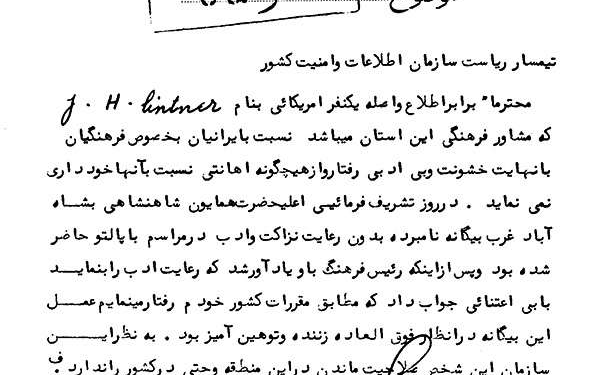 تیمسار ریاست سازمان اطلاعات وامنیت کشور
محترما" برابر اطلاع واصله یکنفر امریکائی بنام J. H. Lintner
که مشاور فرهنگی این استان میباشد نسبت بایرانیان بخصوص فرهنگیان
با نهایت خشونت وبی ادبی رفتار واز هیچگونه اهانتی نسبت بآنها خود داری
نمی نماید . در روز تشریف فرمائی اعلیحضرت همایون شاهنشاهی بشاه
آباد غرب بیگانه نامبرده بدون رعایت نزاکت وادب در مراسم با پالتو حاضر
شده بود وپس از اینکه رئیس فرهنگ باو یاد آور شد که رعایت ادب را بنماید
با بی اعتنائی جواب داد که مطابق مقررات کشور خودم رفتار مینمایم عمل
این بیگانه در انظار فوق العاده زننده وتوهین آمیز بود . به نظر این
سازمان این شخص صلاحیت ماندن در این منطقه وحتی در کشور را ندارد